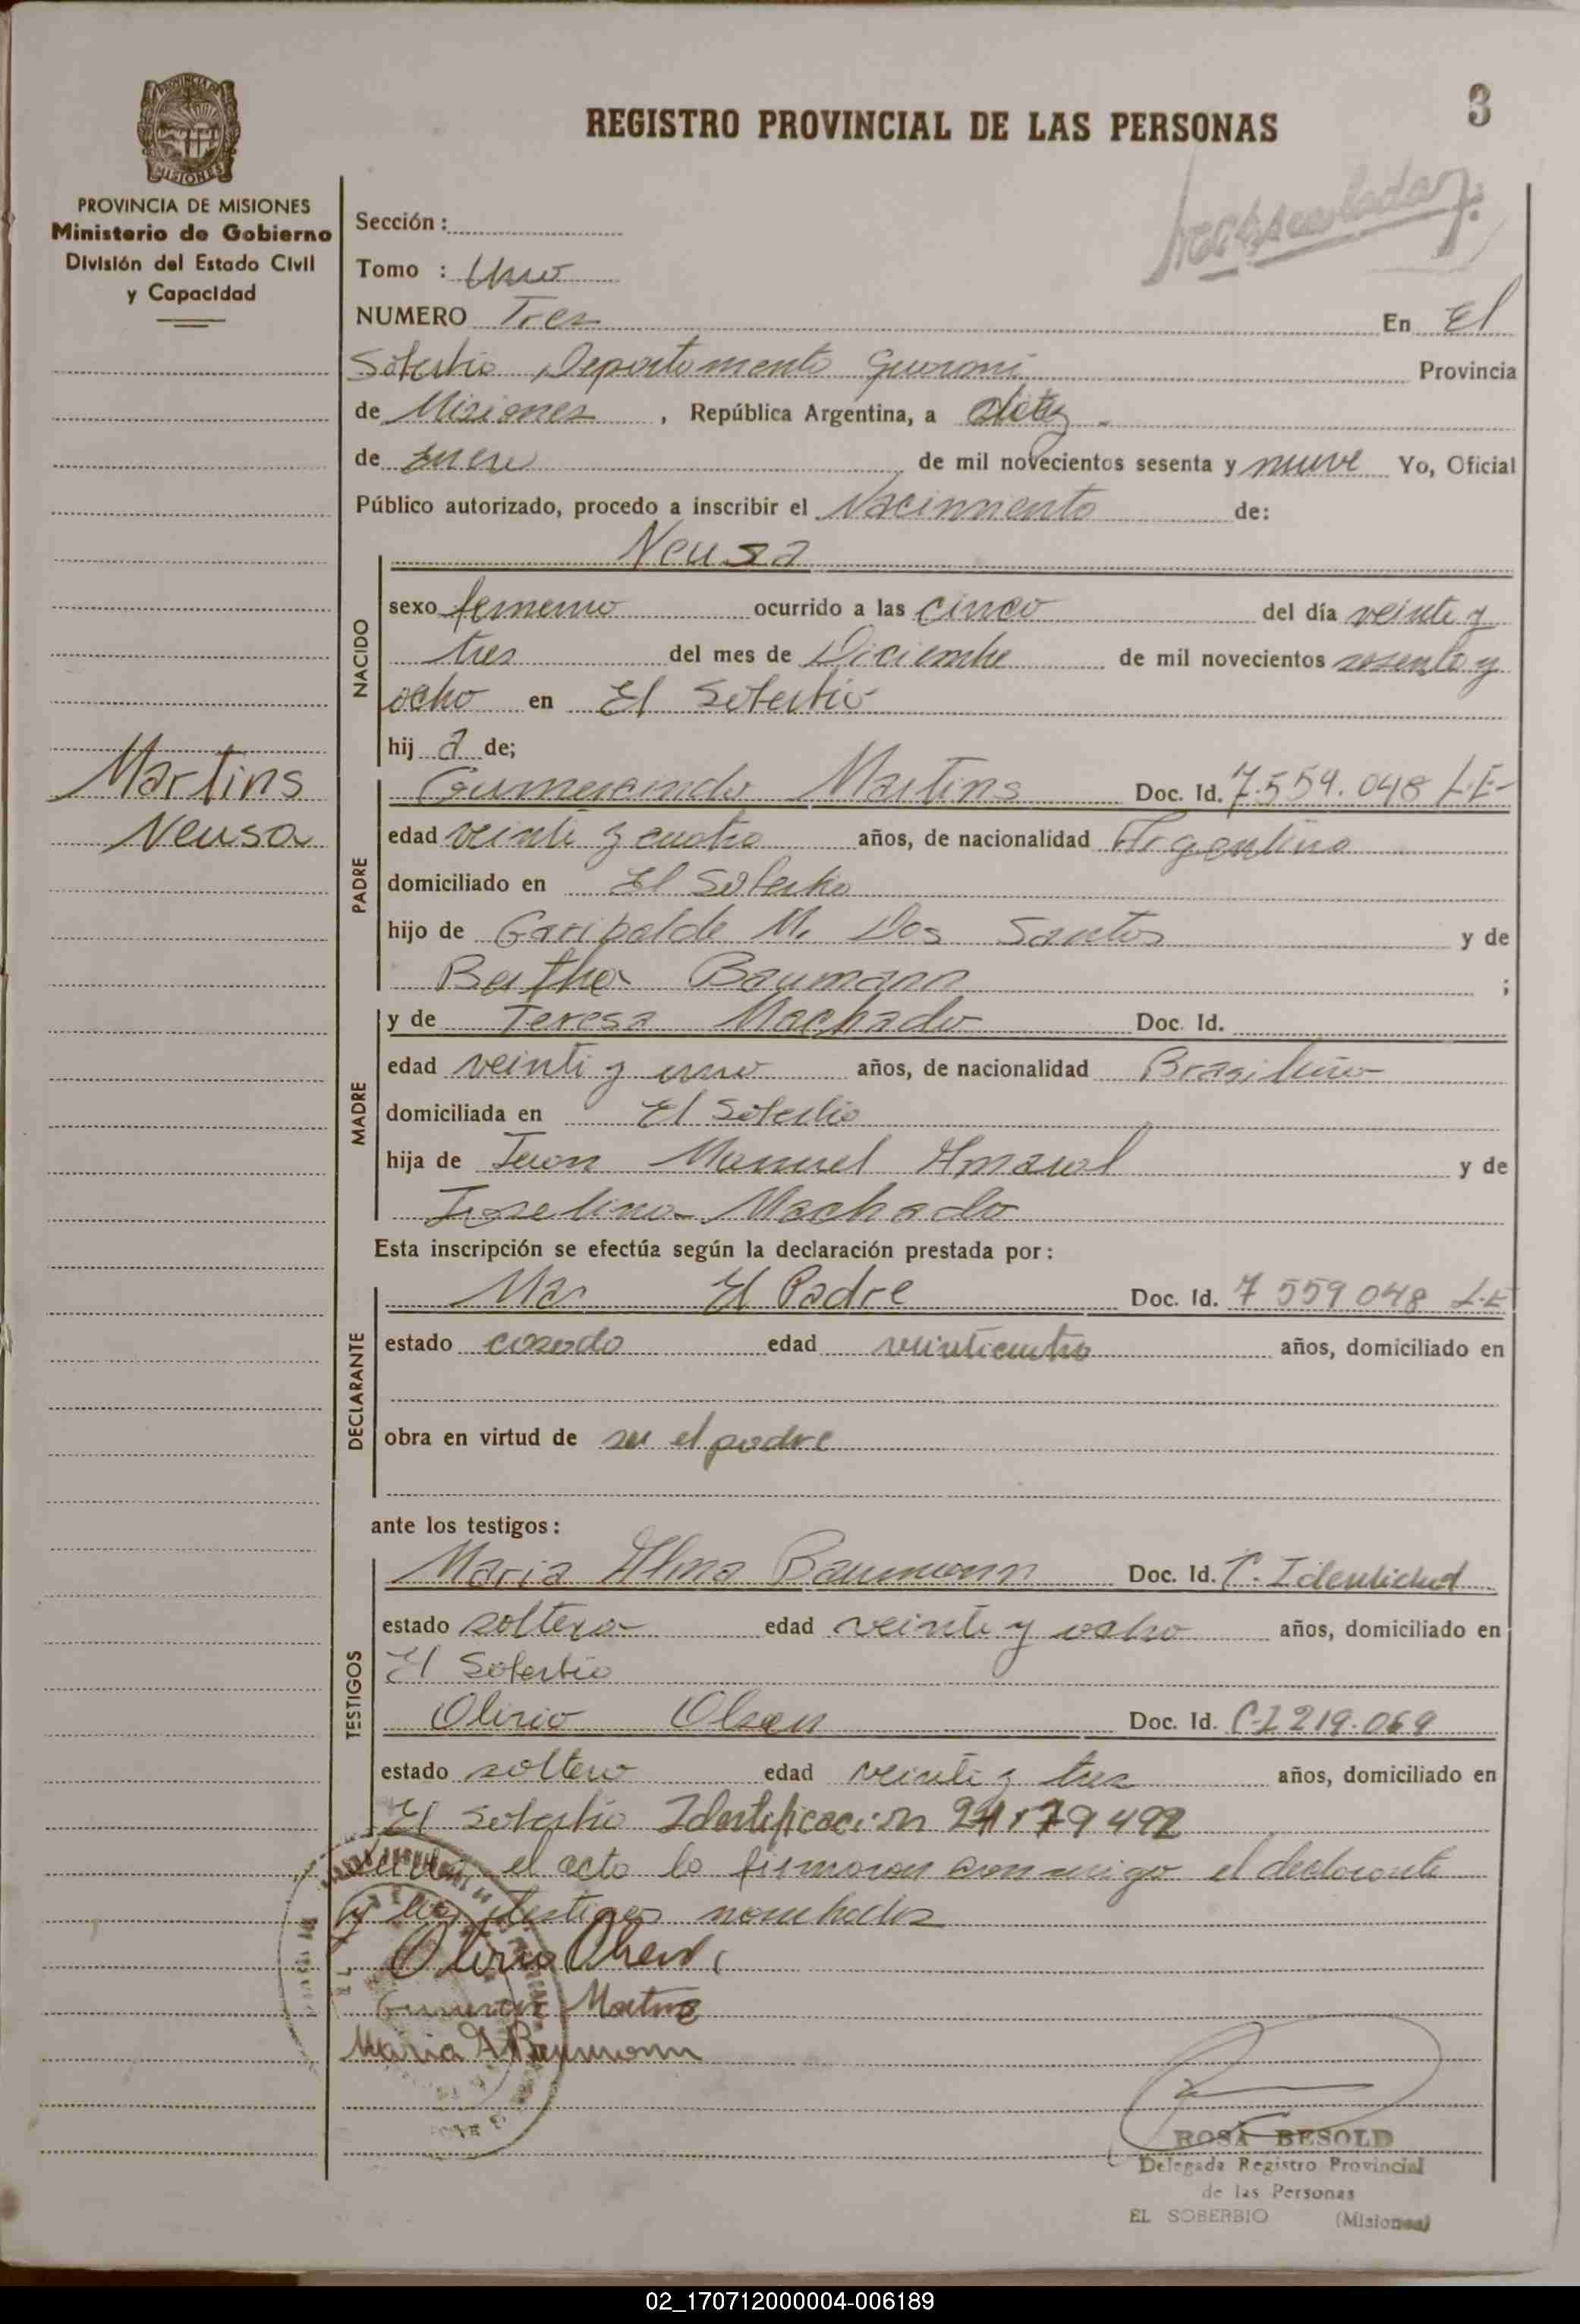 REGISTRO PROVINCIAL DE LAS PERSONAS
3
MISIONES
PROVINCIA DE MISIONES
Ministerio de Gobierno
División del Estado Civil
y Capacidad
Sección :
Tomo : Uno
NUMERO Tres En El
Soberbio, Departamento Guaraní Provincia
de Misiones , República Argentina, a
de Enero de mil novecientos sesenta y nueve Yo, Oficial
Público autorizado, procedo a inscribir el Nacimiento de:
Neusa
NACIDO
sexo femenino ocurrido a las cinco del día veinte y
tres del mes de Diciembre de mil novecientos sesenta y
ocho en El Soberbio
hij a de;
Martins
Neusa
PADRE
Gumercindo Martins Doc. Id. 7.559.048 L.E-
edad veinti y cuatro años, de nacionalidad Argentino
domiciliado en El Soberbio
hijo de Garibalde M. Dos Santos y de
Bertha Baumann ;
MADRE
y de Teresa Machado Doc. Id.
edad veinti y uno años, de nacionalidad Brasileño
domiciliada en El Soberbio
hija de Juan Manuel Amaral y de
Joselina Machado
Esta inscripción se efectúa según la declaración prestada por :
DECLARANTE
El Padre Doc. Id. 7 559 048 L.E
estado casado edad veinticuatro años, domiciliado en
obra en virtud de ser el padre
ante los testigos :
TESTIGOS
Maria Alma Baumann Doc. Id. C. Identidad
estado soltera edad veinte y ocho años, domiciliado en
El Soberbio
Olirio Olsen Doc. Id. C-I 219.069
estado soltero edad veinti y tres años, domiciliado en
El Soberbio Identificación
el acto lo firmaran conmigo el declarante
y los testigos nombrados
Olirio Olsen
Martins
Maria A Baumann
ROSA BESOLD
Delegada Registro Provincial
de las Personas
EL SOBERBIO (Misiones)
02_170712000004-006189